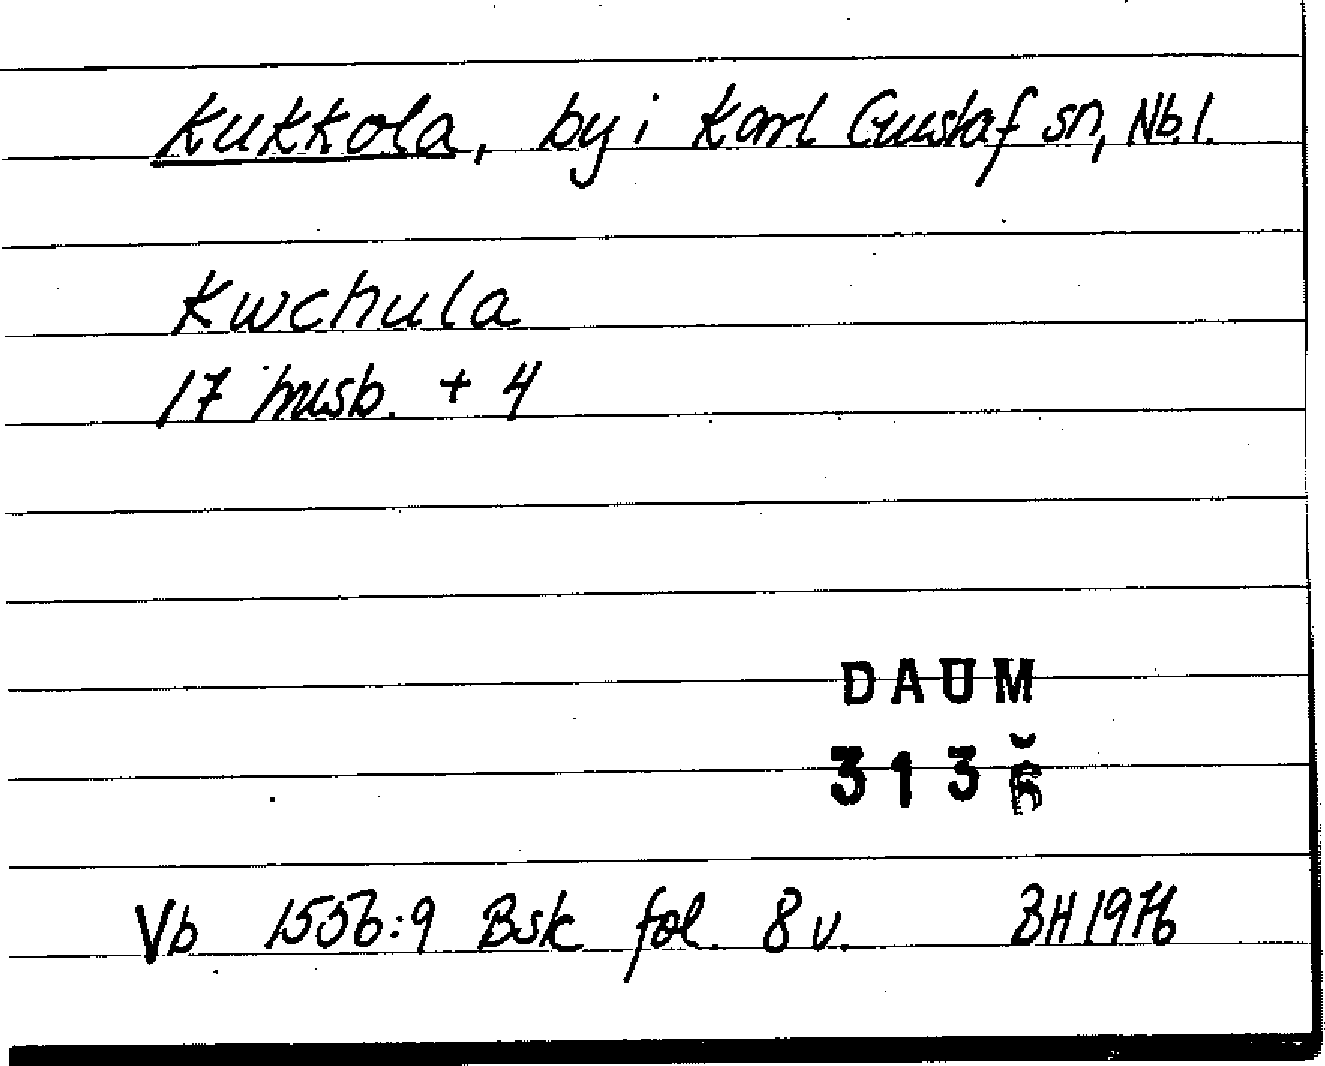 Kukkola, by i Karl Gustaf sn, Nb.l.
Kwchula
17 husb. + 4
DAUM
313
Vb 1556:9 Bsk fol. 8 v. BH 1976